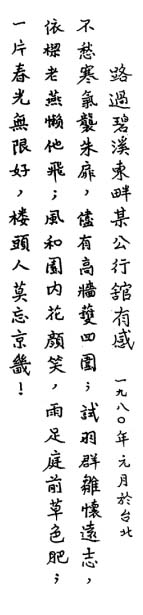 路過碧溪東畔某公行舘有感 一九八〇年元月於台北
不愁寒氣襲朱扉,儘有高牆雙四圍;試羽群雛懷遠志,
依樑老燕懶他飛;風和園内花顏笑,雨足庭前草色肥;
一片春光無限好,楼頭人莫忘京畿!